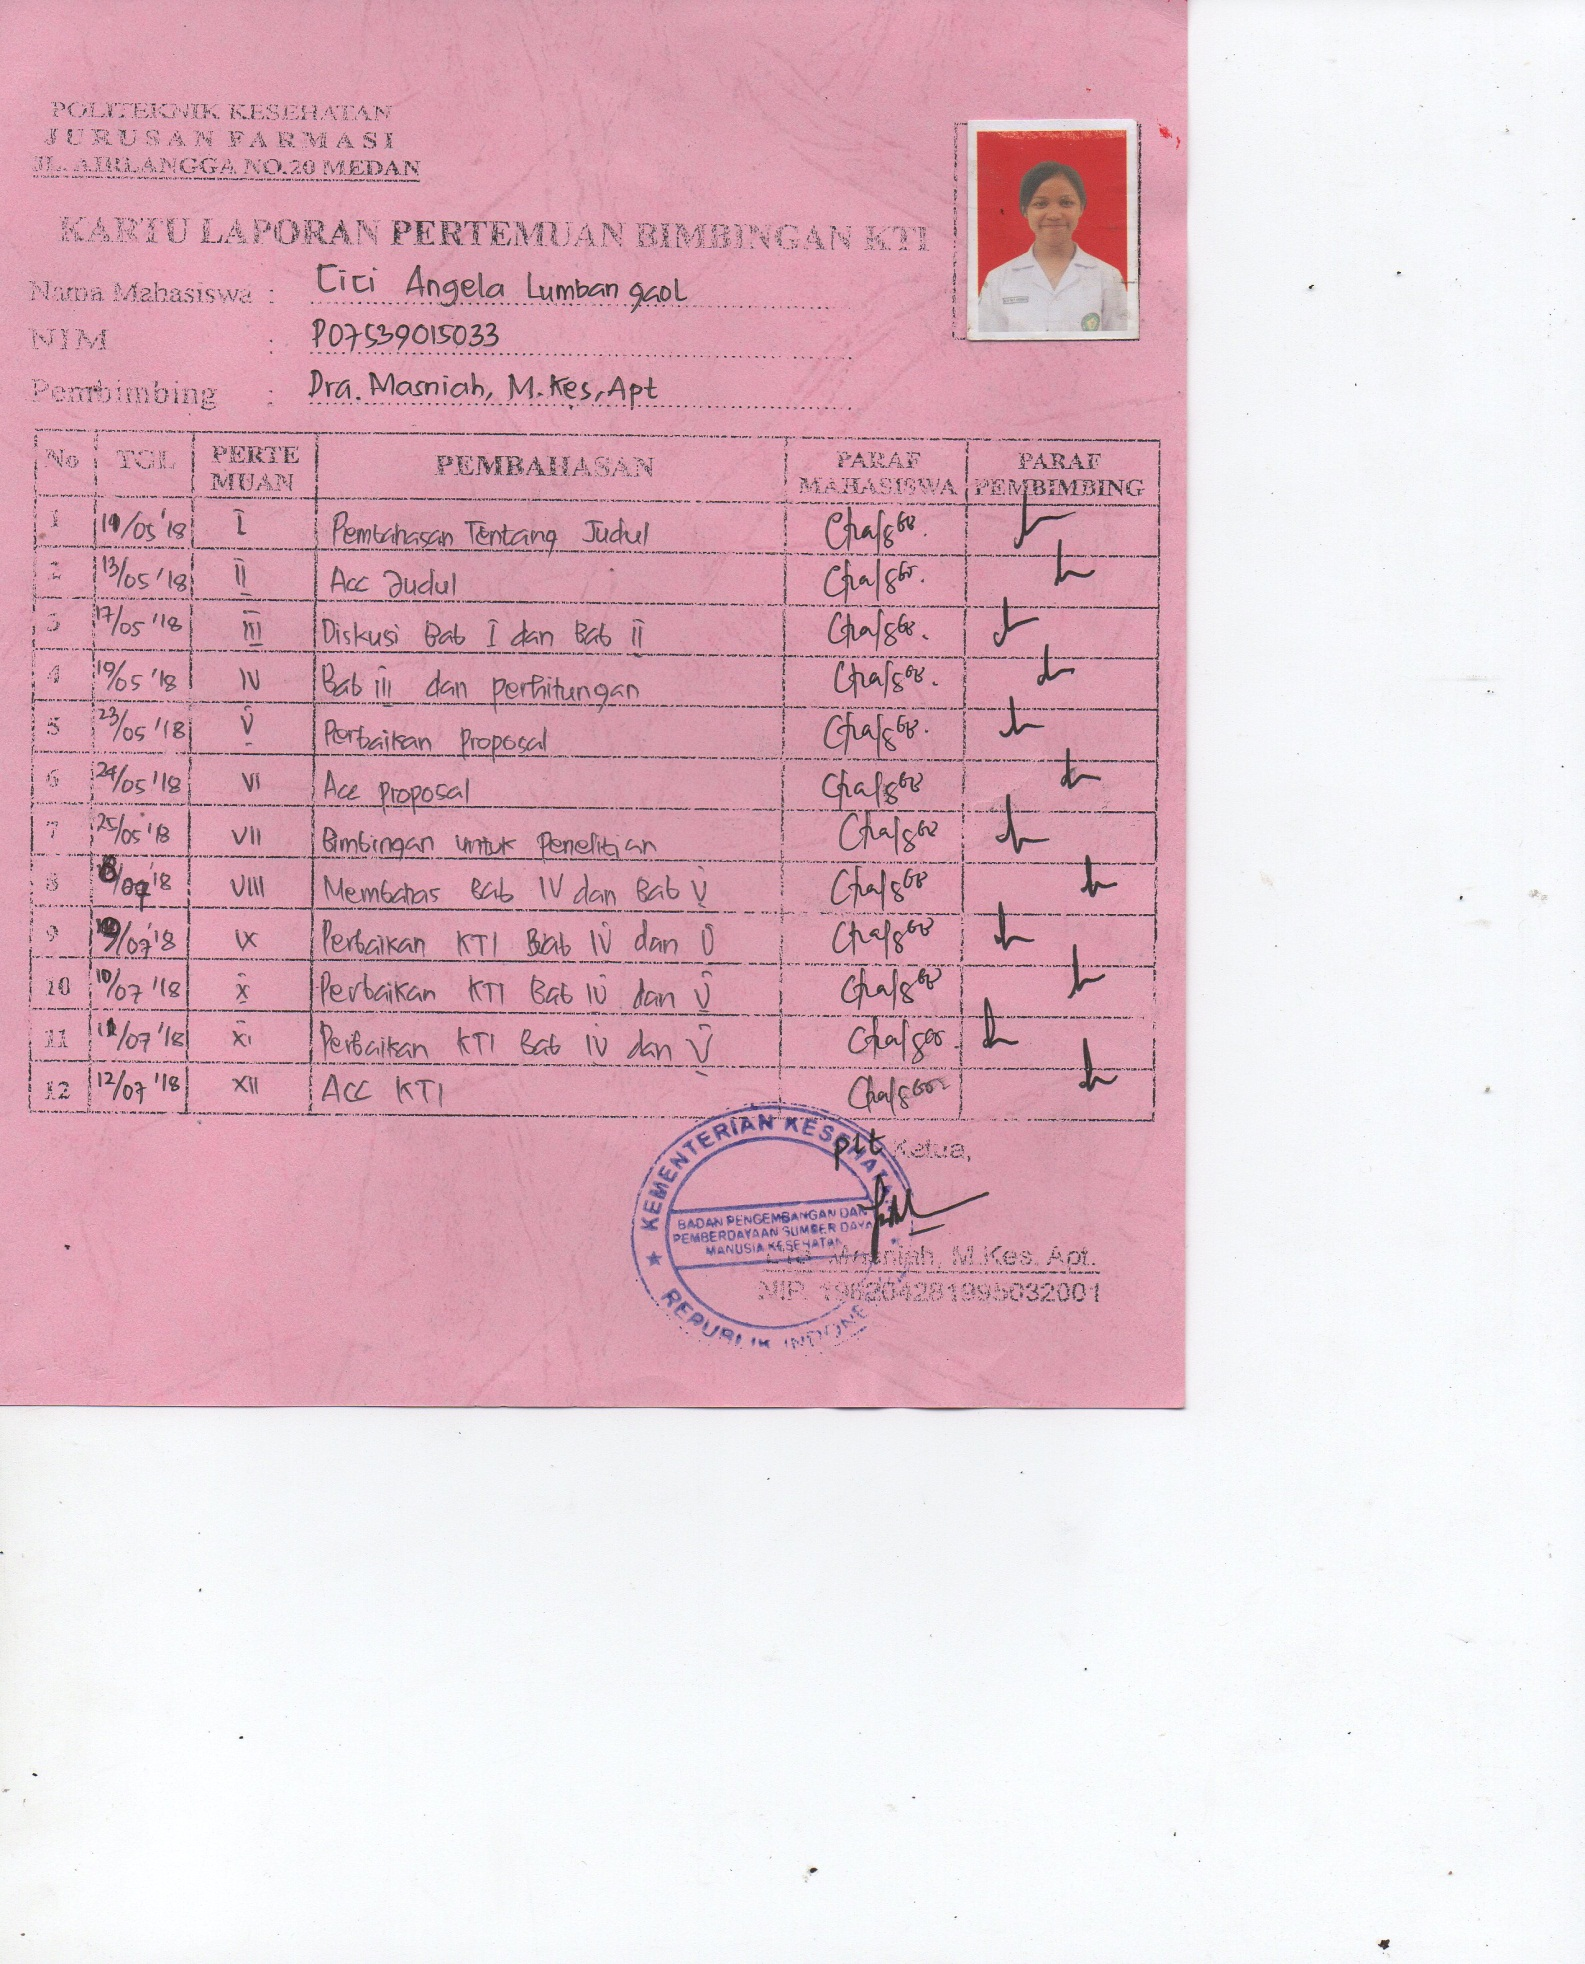 POLITEKNIK KESEHATAN
JURUSAN FARMASI
JL. AIRLANGGA NO.20 MEDAN
KARTU LAPORAN PERTEMUAN BIMBINGAN KTI
Nama Mahasiswa : Citi Angela Lumbangaol
NIM : P07539015033
Pembimbing : Dra. Masniah, M.Kes, Apt
No TGL PERTEMUAN PEMBAHASAN PARAF MAHASISWA PARAF PEMBIMBING
1 /05 '18 I Pembahasan Tentang Judul
2 13/05 '18 II Acc Judul
3 17/05 '18 III Diskusi Bab I dan Bab II
4 19/05 '18 IV Bab III dan perhitungan
5 23/05 '18 V Perbaikan proposal
6 24/05 '18 VI Acc proposal
7 25/05 '18 VII Bimbingan untuk Penelitian
8 /07 '18 VIII Membahas Bab IV dan Bab V
9 /07 '18 IX Perbaikan KTI Bab IV dan V
10 10/07 '18 X Perbaikan KTI Bab IV dan V
11 11/07 '18 XI Perbaikan KTI Bab IV dan V
12 12/07 '18 XII Acc KTI
plt Ketua,
KEMENTERIAN KESEHATA
BADAN PENGEMBANGAN DAN
PEMBERDAYAAN SUMBER DAYA
MANUSIA KESEHATAN
REPUBLIK INDONE
Masniah, M.Kes. Apt.
NIP. 196204281995032001